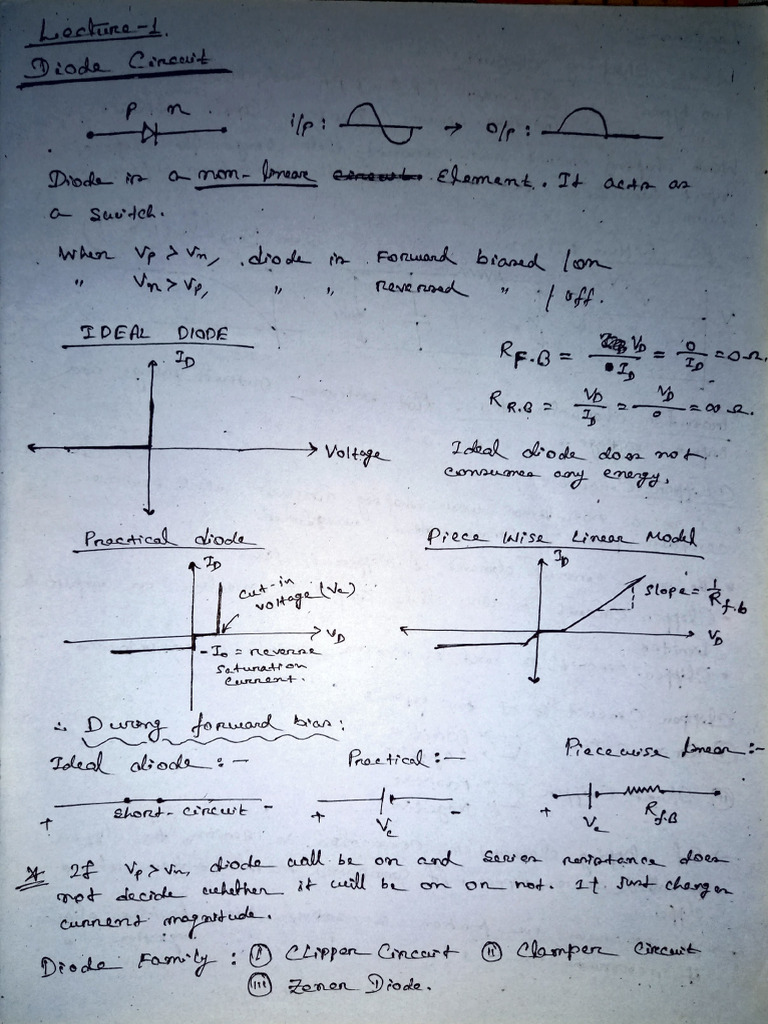 Lecture-1.
Diode Circuit
P n i/p: → o/p:
Diode is a non-linear circuit Element. It acts as
a switch.
When Vp > Vn, diode is Forward biased / on
" Vn > Vp, " " reversed " / off.
IDEAL DIODE
I_D
Voltage
R_F.B = V_D/I_D = 0/I_D = 0 Ω.
R_R.B = V_D/I_D = V_D/0 = ∞ Ω.
Ideal diode does not
consumes any energy.
Practical diode
I_D
cut-in
voltage (Vc)
V_D
-I₀ = reverse
saturation
current.
Piece Wise Linear Model
I_D
slope = 1/R_f.b
V_D
∴ During forward bias:
Ideal diode :-
+ short-circuit -
Practical :-
+ Vc -
Piecewise linear :-
+ Vc R_f.B
* If Vp > Vn, diode will be on and series resistance does
not decide whether it will be on on not. It just changes
current magnitude.
Diode Family : (i) Clipper Circuit (ii) Clamper Circuit
(iii) Zener Diode.